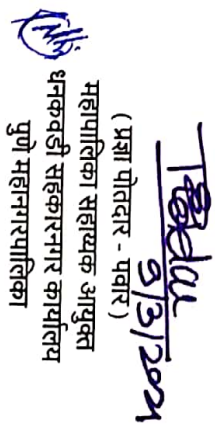 3/3/2021
(प्रज्ञा पोतदार - पवार)
महापालिका सहाय्यक आयुक्त
धनकवडी सहकारनगर कार्यालय
पुणे महानगरपालिका